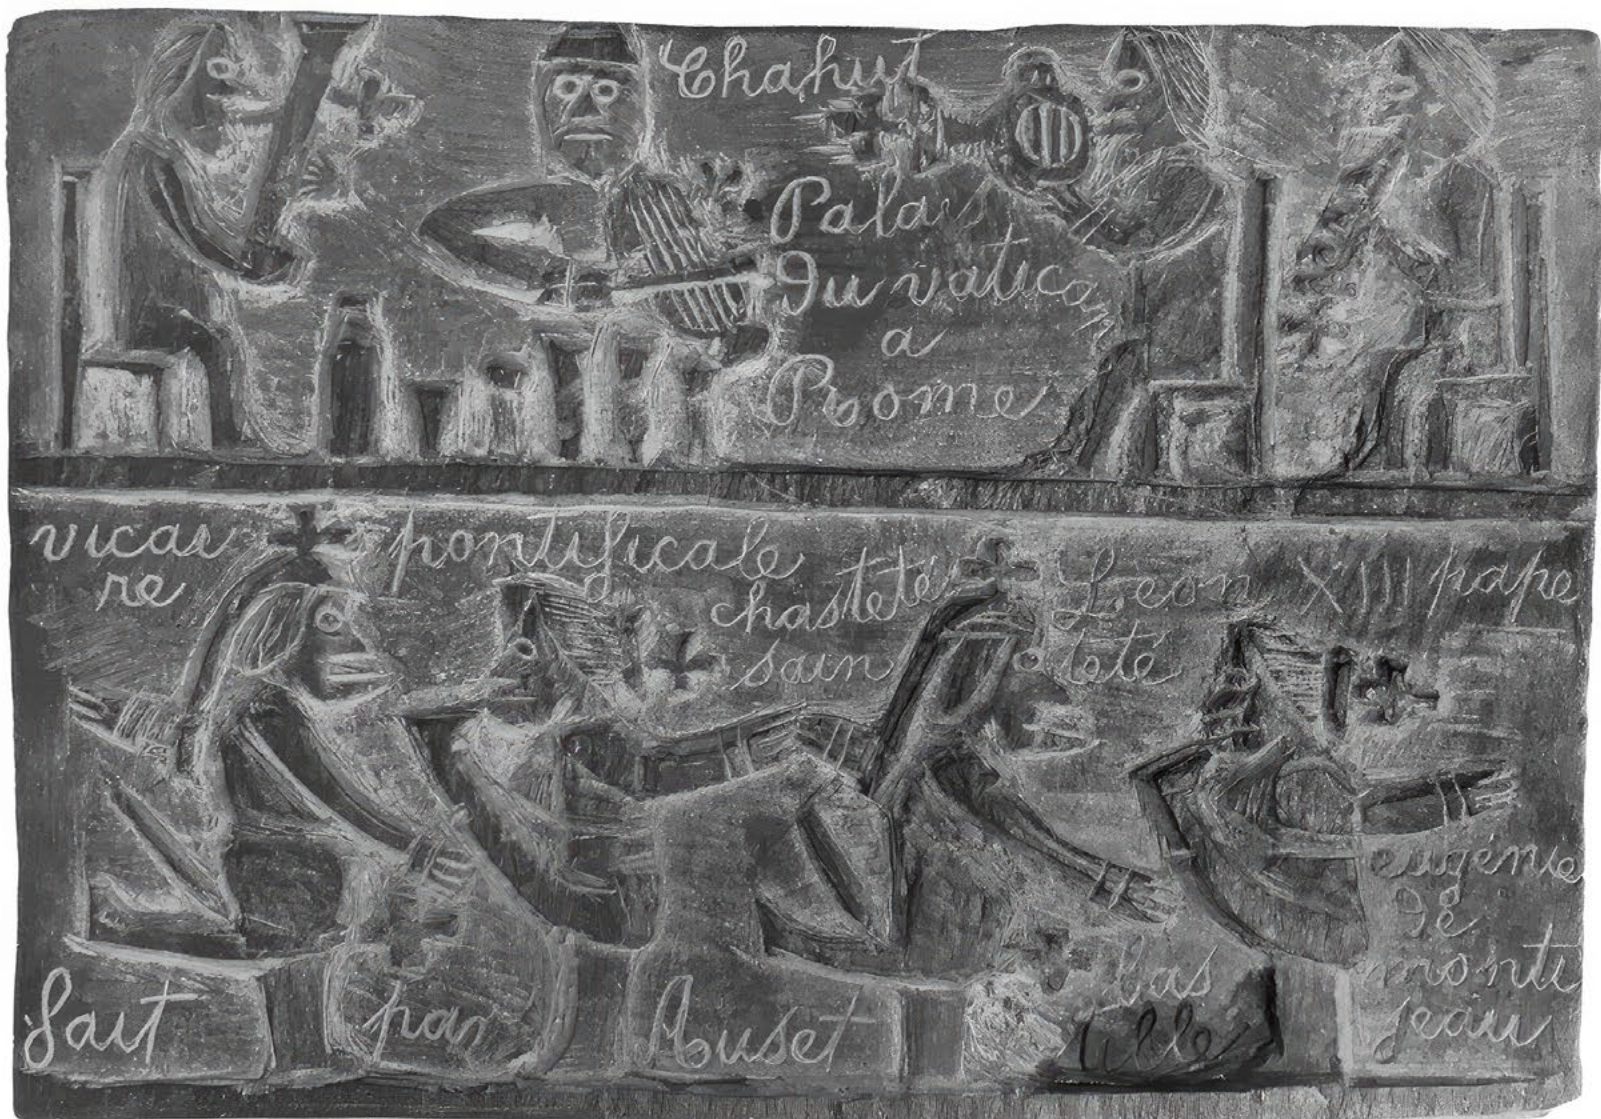 Chahut
Palais
Du vatican
a
Rome
vicai
re
pontificale
chasteté
sain
teté
Léon XIII pape
eugénie
De
monti
jeau
fait
par
Auset
bas
tille